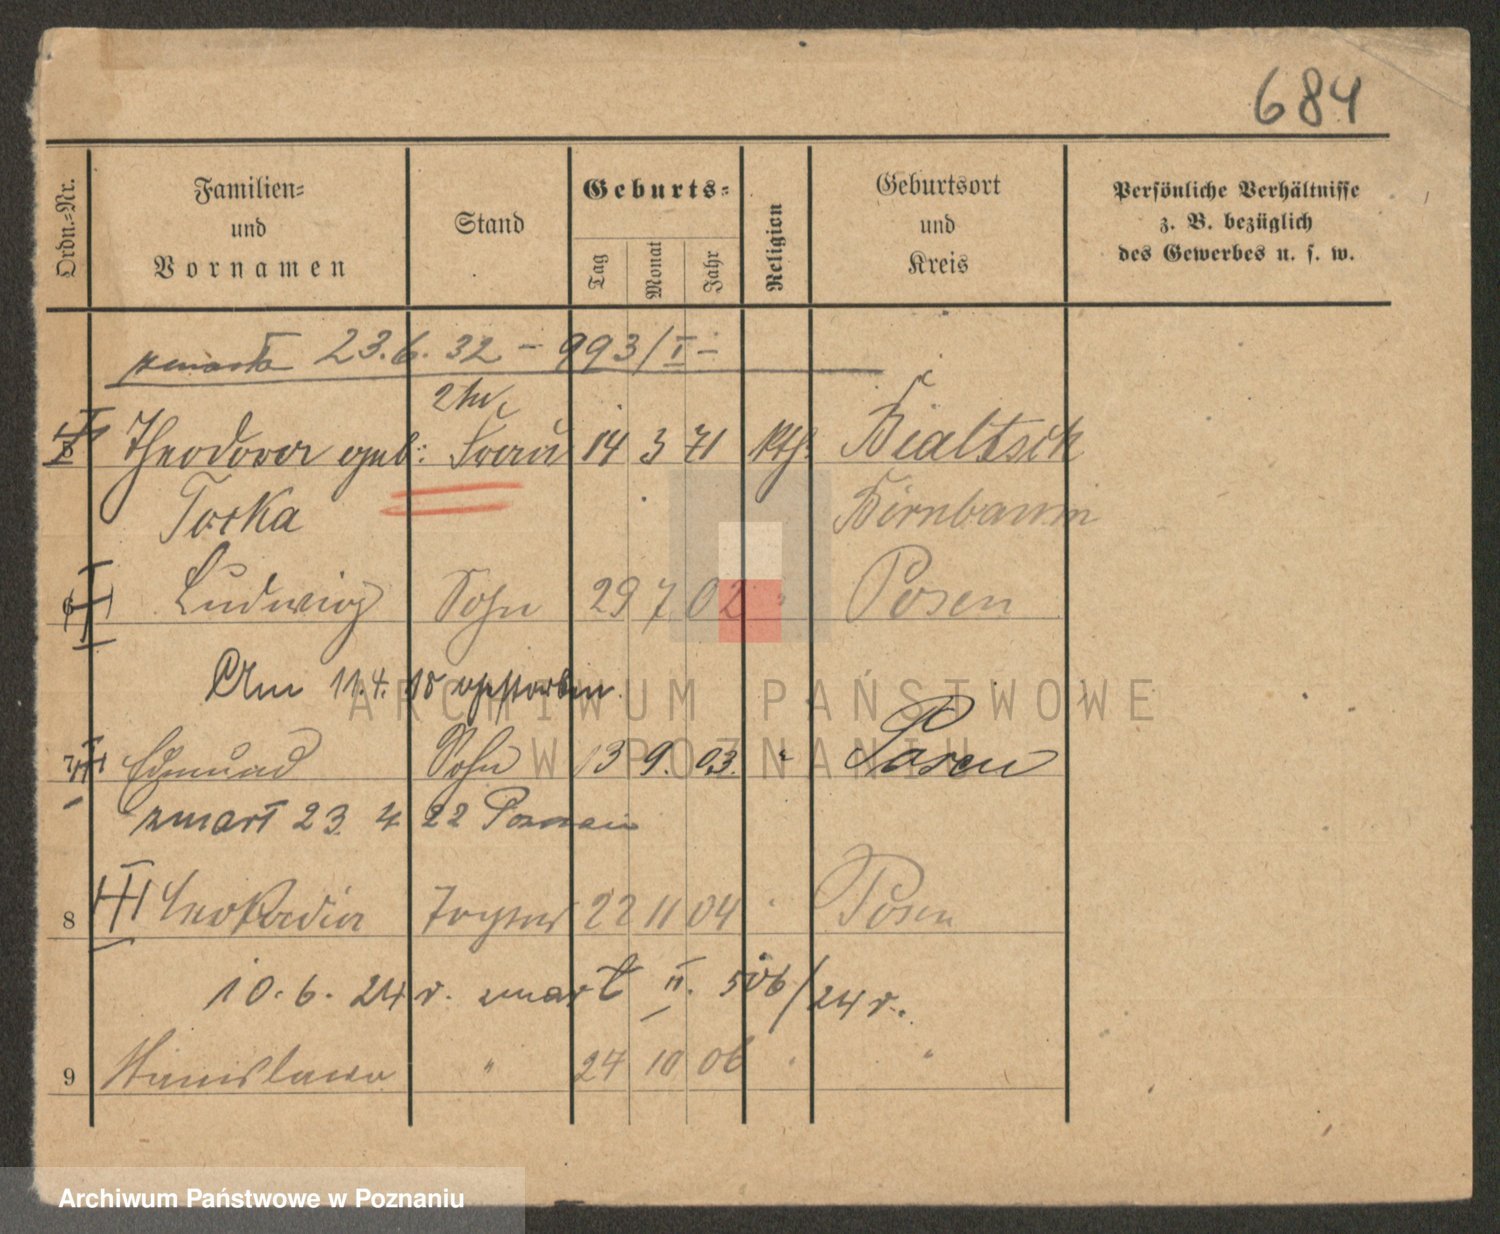 684
Ordn.-Nr.
Familien- und Vornamen
Stand
Geburts-
Tag
Monat
Jahr
Religion
Geburtsort und Kreis
Persönliche Verhältnisse z. B. bezüglich des Gewerbes u. s. w.
zmarła 23.6.32 - 993/I -
5 Theodora geb: Frau 14 3 71 kth. Bialtsch
Torka Birnbaum
6 Ludwig Sohn 29 7 02 " Posen
Am 11.4.18 gestorben.
7 Edmund Sohn 13 9. 03. " Posen
zmarł 23. 4 22 Poznań
8 Leokadia Tochter 22 11 04 " Posen
10.6.24 r. zmarł II. 506/24 r.
9 Stanislawa " 24 10 06 " "
ARCHIWUM PAŃSTWOWE
W POZNANIU
Archiwum Państwowe w Poznaniu